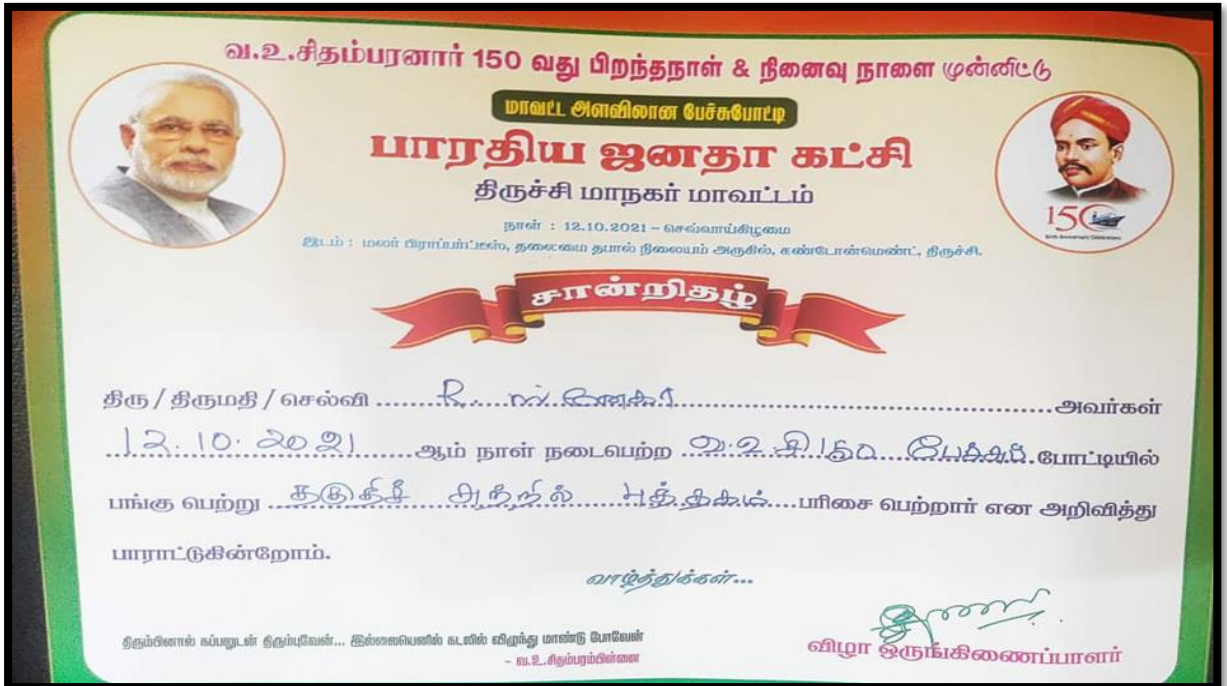 வ.உ.சிதம்பரனார் 150 வது பிறந்தநாள் & நினைவு நாளை முன்னிட்டு
மாவட்ட அளவிலான பேச்சுபோட்டி
பாரதிய ஜனதா கட்சி
திருச்சி மாநகர் மாவட்டம்
150
நாள் : 12.10.2021 – செவ்வாய்கிழமை
இடம் : மலர் பிராப்பர்ட்டீஸ், தலைமை தபால் நிலையம் அருகில், கண்டோன்மெண்ட், திருச்சி.
சான்றிதழ்
திரு / திருமதி / செல்வி ...... R. ...... அவர்கள்
12.10.2021 ஆம் நாள் நடைபெற்ற வ.உ.சி 150 பேச்சுப் போட்டியில்
பங்கு பெற்று தகுதிச் சுற்றில் புத்தகம் பரிசை பெற்றார் என அறிவித்து
பாராட்டுகின்றோம்.
வாழ்த்துக்கள்...
திரும்பினால் கப்பலுடன் திரும்புவேன்... இல்லையெனில் கடலில் விழுந்து மாண்டு போவேன்
- வ.உ.சிதம்பரம்பிள்ளை
விழா ஒருங்கிணைப்பாளர்